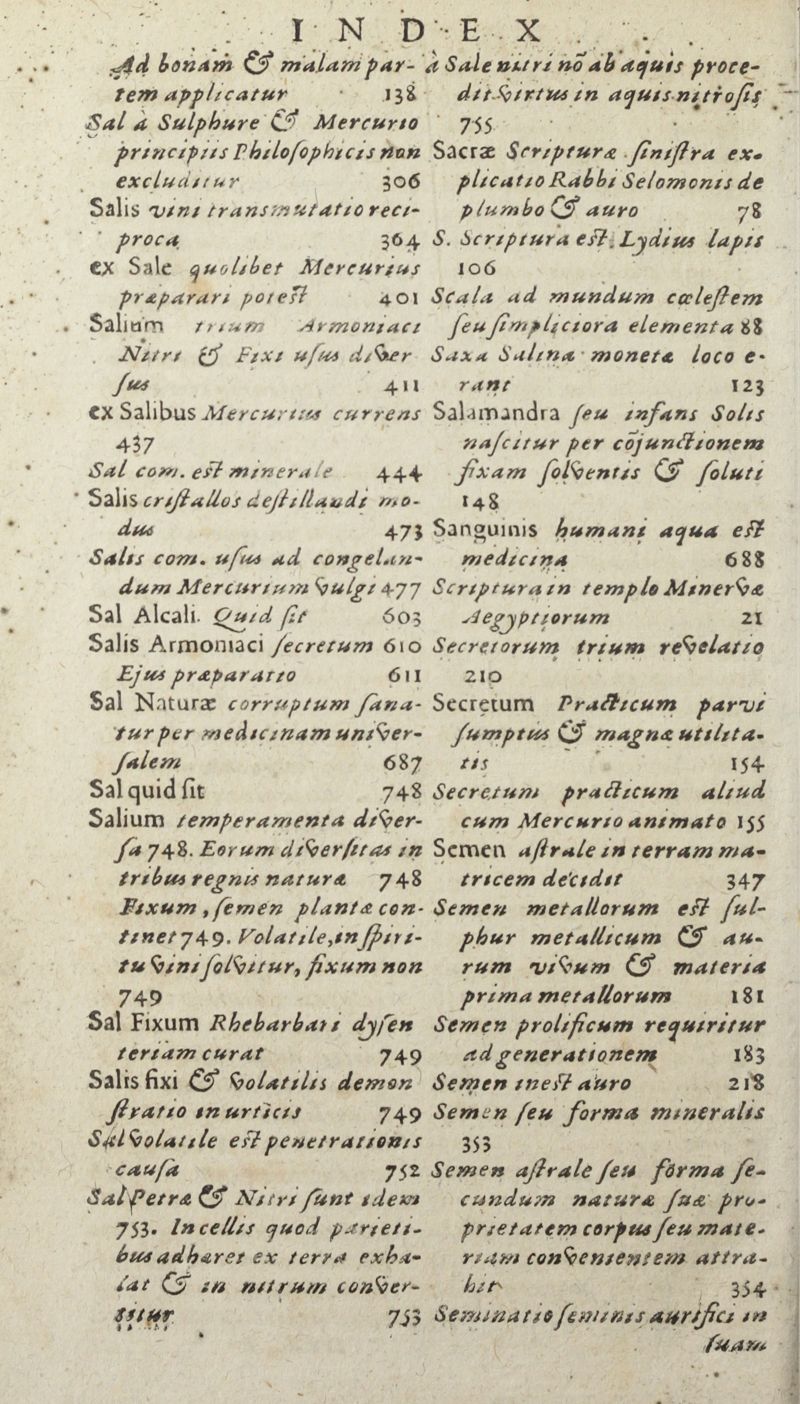 INDEX
Ad bonam & malam par-
tem applicatur 138
Sal à Sulphure & Mercurio
principiis Philosophicis non
excluditur 306
Salis vini transmutatio reci-
proca 364
ex Sale quolibet Mercurius
præparari potest 401
Salium trium Armoniaci
Nitri & Fixi usus diver
sus 411
ex Salibus Mercurius currens
437
Sal com. est minerale 444
Salis cristallos destillandi mo-
dus 473
Salis com. usus ad congelan-
dum Mercurium vulgi 477
Sal Alcali. Quid sit 603
Salis Armoniaci secretum 610
Ejus præparatio 611
Sal Naturæ corruptum sana-
tur per medicinam univer-
salem 687
Sal quid sit 748
Salium temperamenta diver-
sa 748. Eorum diversitas in
tribus regnis naturæ 748
Fixum, semen plantæ con-
tinet 749. Volatile, in spiri-
tu vini solvitur, fixum non
749
Sal Fixum Rhebarbari dysen
teriam curat 749
Salis fixi & volatilis demon
stratio in urticis 749
Sal volatile est penetrationis
causa 752
Sal Petræ & Nitri sunt idem
753. In cellis quod parieti-
bus adhæret ex terra exha-
lat & in nitrum conver-
titur 753
à Sale nitri nõ ab aquis proce-
dit virtus in aquis nitrosis
755
Sacræ Scripturæ sinistra ex-
plicatio Rabbi Selomonis de
plumbo & auro 78
S. Scriptura est Lydius lapis
106
Scala ad mundum cœlestem
seu simpliciora elementa 88
Saxa Salina monetæ loco e-
rant 123
Salamandra seu infans Solis
nascitur per cõjunctionem
fixam solventis & soluti
148
Sanguinis humani aqua est
medicina 688
Scriptura in templo Minervæ
Aegyptiorum 21
Secretorum trium revelatio
210
Secretum Practicum parvi
sumptus & magnæ utilita-
tis 154
Secretum practicum aliud
cum Mercurio animato 155
Semen astrale in terram ma-
tricem decidit 347
Semen metallorum est sul-
phur metallicum & au-
rum vivum & materia
prima metallorum 181
Semen prolificum requiritur
ad generationem 183
Semen inest auro 218
Semen seu forma mineralis
353
Semen astrale seu forma se-
cundum naturæ suæ pro-
prietatem corpus seu mate-
riam convenientem attra-
hit 354
Seminatio seminis aurifici in
suam